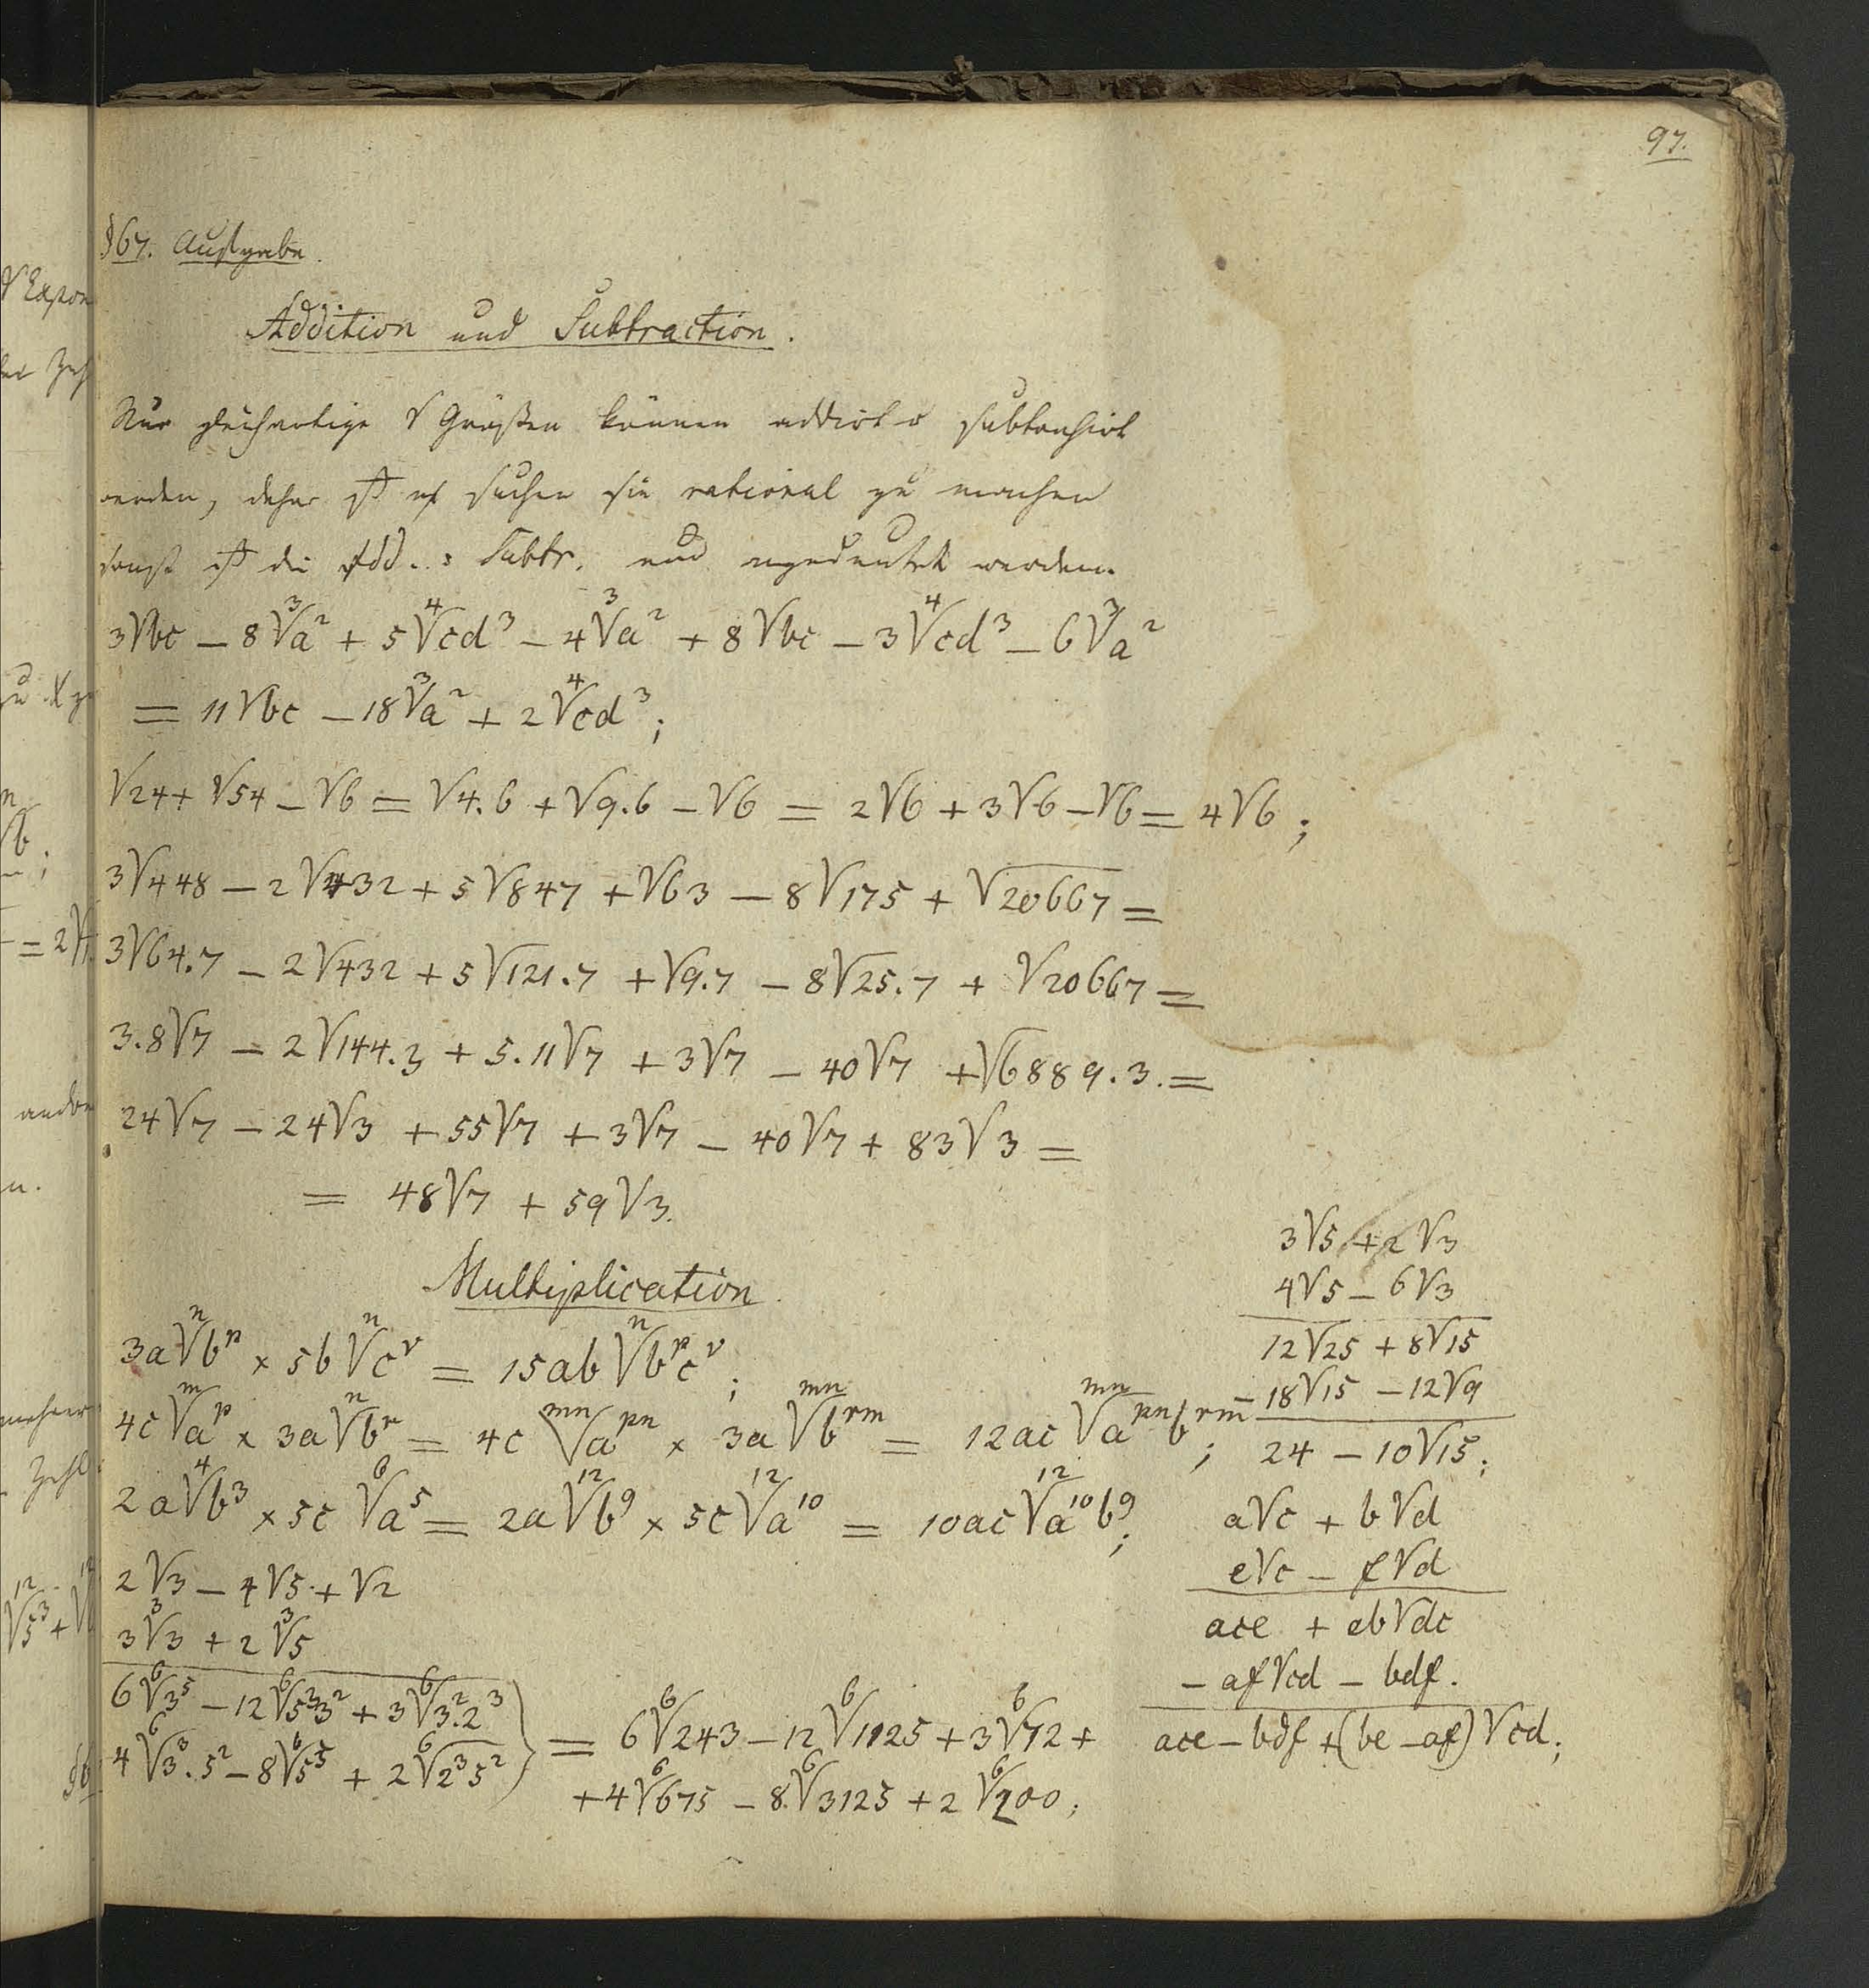 97.
§67. Aufgabe.
Addition und Subtraction.
Nur gleichartige √ Größen können addirt o subtrahirt
werden, daher ist suchen sie rational zu machen
sonst die Add. Subtr. nur angedeutet werden.
3√bc − 8∛a² + 5∜cd³ − 4∛a² + 8√bc − 3∜cd³ − 6∛a²
= 11√bc − 18∛a² + 2∜cd³;
√24 + √54 − √6 = √4.6 + √9.6 − √6 = 2√6 + 3√6 − √6 = 4√6;
3√448 − 2√432 + 5√847 + √63 − 8√175 + √20667 =
3√64.7 − 2√432 + 5√121.7 + √9.7 − 8√25.7 + √20667 =
3.8√7 − 2√144.3 + 5.11√7 + 3√7 − 40√7 + √6889.3. =
24√7 − 24√3 + 55√7 + 3√7 − 40√7 + 83√3 =
= 48√7 + 59√3.
Multiplication.
3a ⁿ√bᵖ × 5b ⁿ√cʳ = 15ab ⁿ√bᵖcʳ;
4c ᵐ√aᵖ × 3a ⁿ√bʳ = 4c ᵐⁿ√aᵖⁿ × 3a ᵐⁿ√bʳᵐ = 12ac ᵐⁿ√aᵖⁿbʳᵐ;
2a ⁴√b³ × 5c ⁶√a⁵ = 2a ¹²√b⁹ × 5c ¹²√a¹⁰ = 10ac ¹²√a¹⁰b⁹;
2√3 − 4√5 + √2
3∛3 + 2∛5
6⁶√3⁵ − 12⁶√5³3² + 3⁶√3².2³
4⁶√3³.5² − 8⁶√5⁵ + 2⁶√2³5²
= 6⁶√243 − 12⁶√1125 + 3⁶√72 +
+ 4⁶√675 − 8⁶√3125 + 2⁶√200;
3√5 + 2√3
4√5 − 6√3
12√25 + 8√15
− 18√15 − 12√9
24 − 10√15;
a√c + b√d
e√c − f√d
ace + eb√dc
− af√cd − bdf.
ace − bdf + (be − af)√cd;